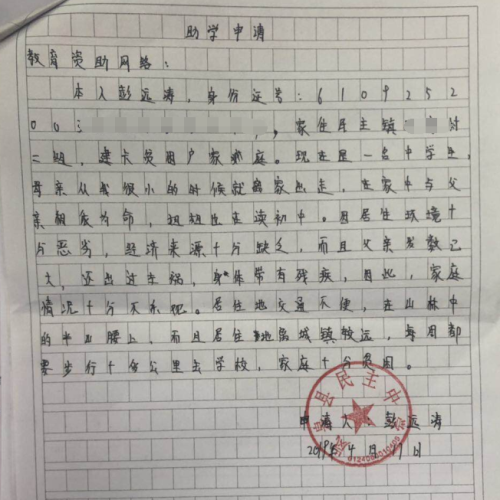 助学申请
教育资助网络：
本人彭远涛，身份证号：6109252
00
，家住民主镇 村
二组，建卡贫困户家庭。现在是一名中学生，
母亲从我很小的时候就离家出走，在家中与父
亲相依为命，姐姐在读初中。因居住环境十
分恶劣，经济来源十分缺乏，而且父亲岁数已
大，还出过车祸，身体带有残疾，因此，家庭
情况十分不乐观。居住地交通不便，在山林中
的半山腰上，而且居住地离城镇较远，每周都
要步行十余公里去学校，家庭十分贫困。
县民主中
申请人 彭远涛
2019年4月11日